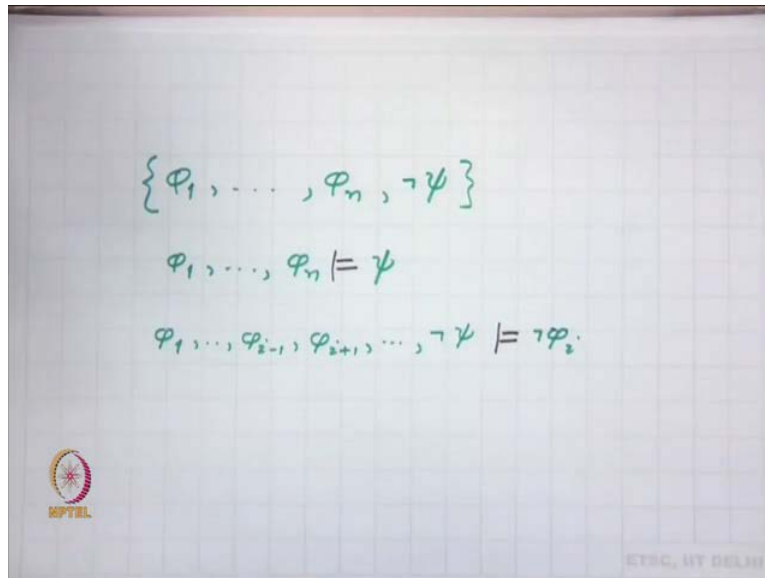 {φ₁, ..., φₙ, ¬ψ}
φ₁, ..., φₙ ⊨ ψ
φ₁, .., φᵢ₋₁, φᵢ₊₁, ..., ¬ψ ⊨ ¬φᵢ
NPTEL
ETSC, IIT DELHI